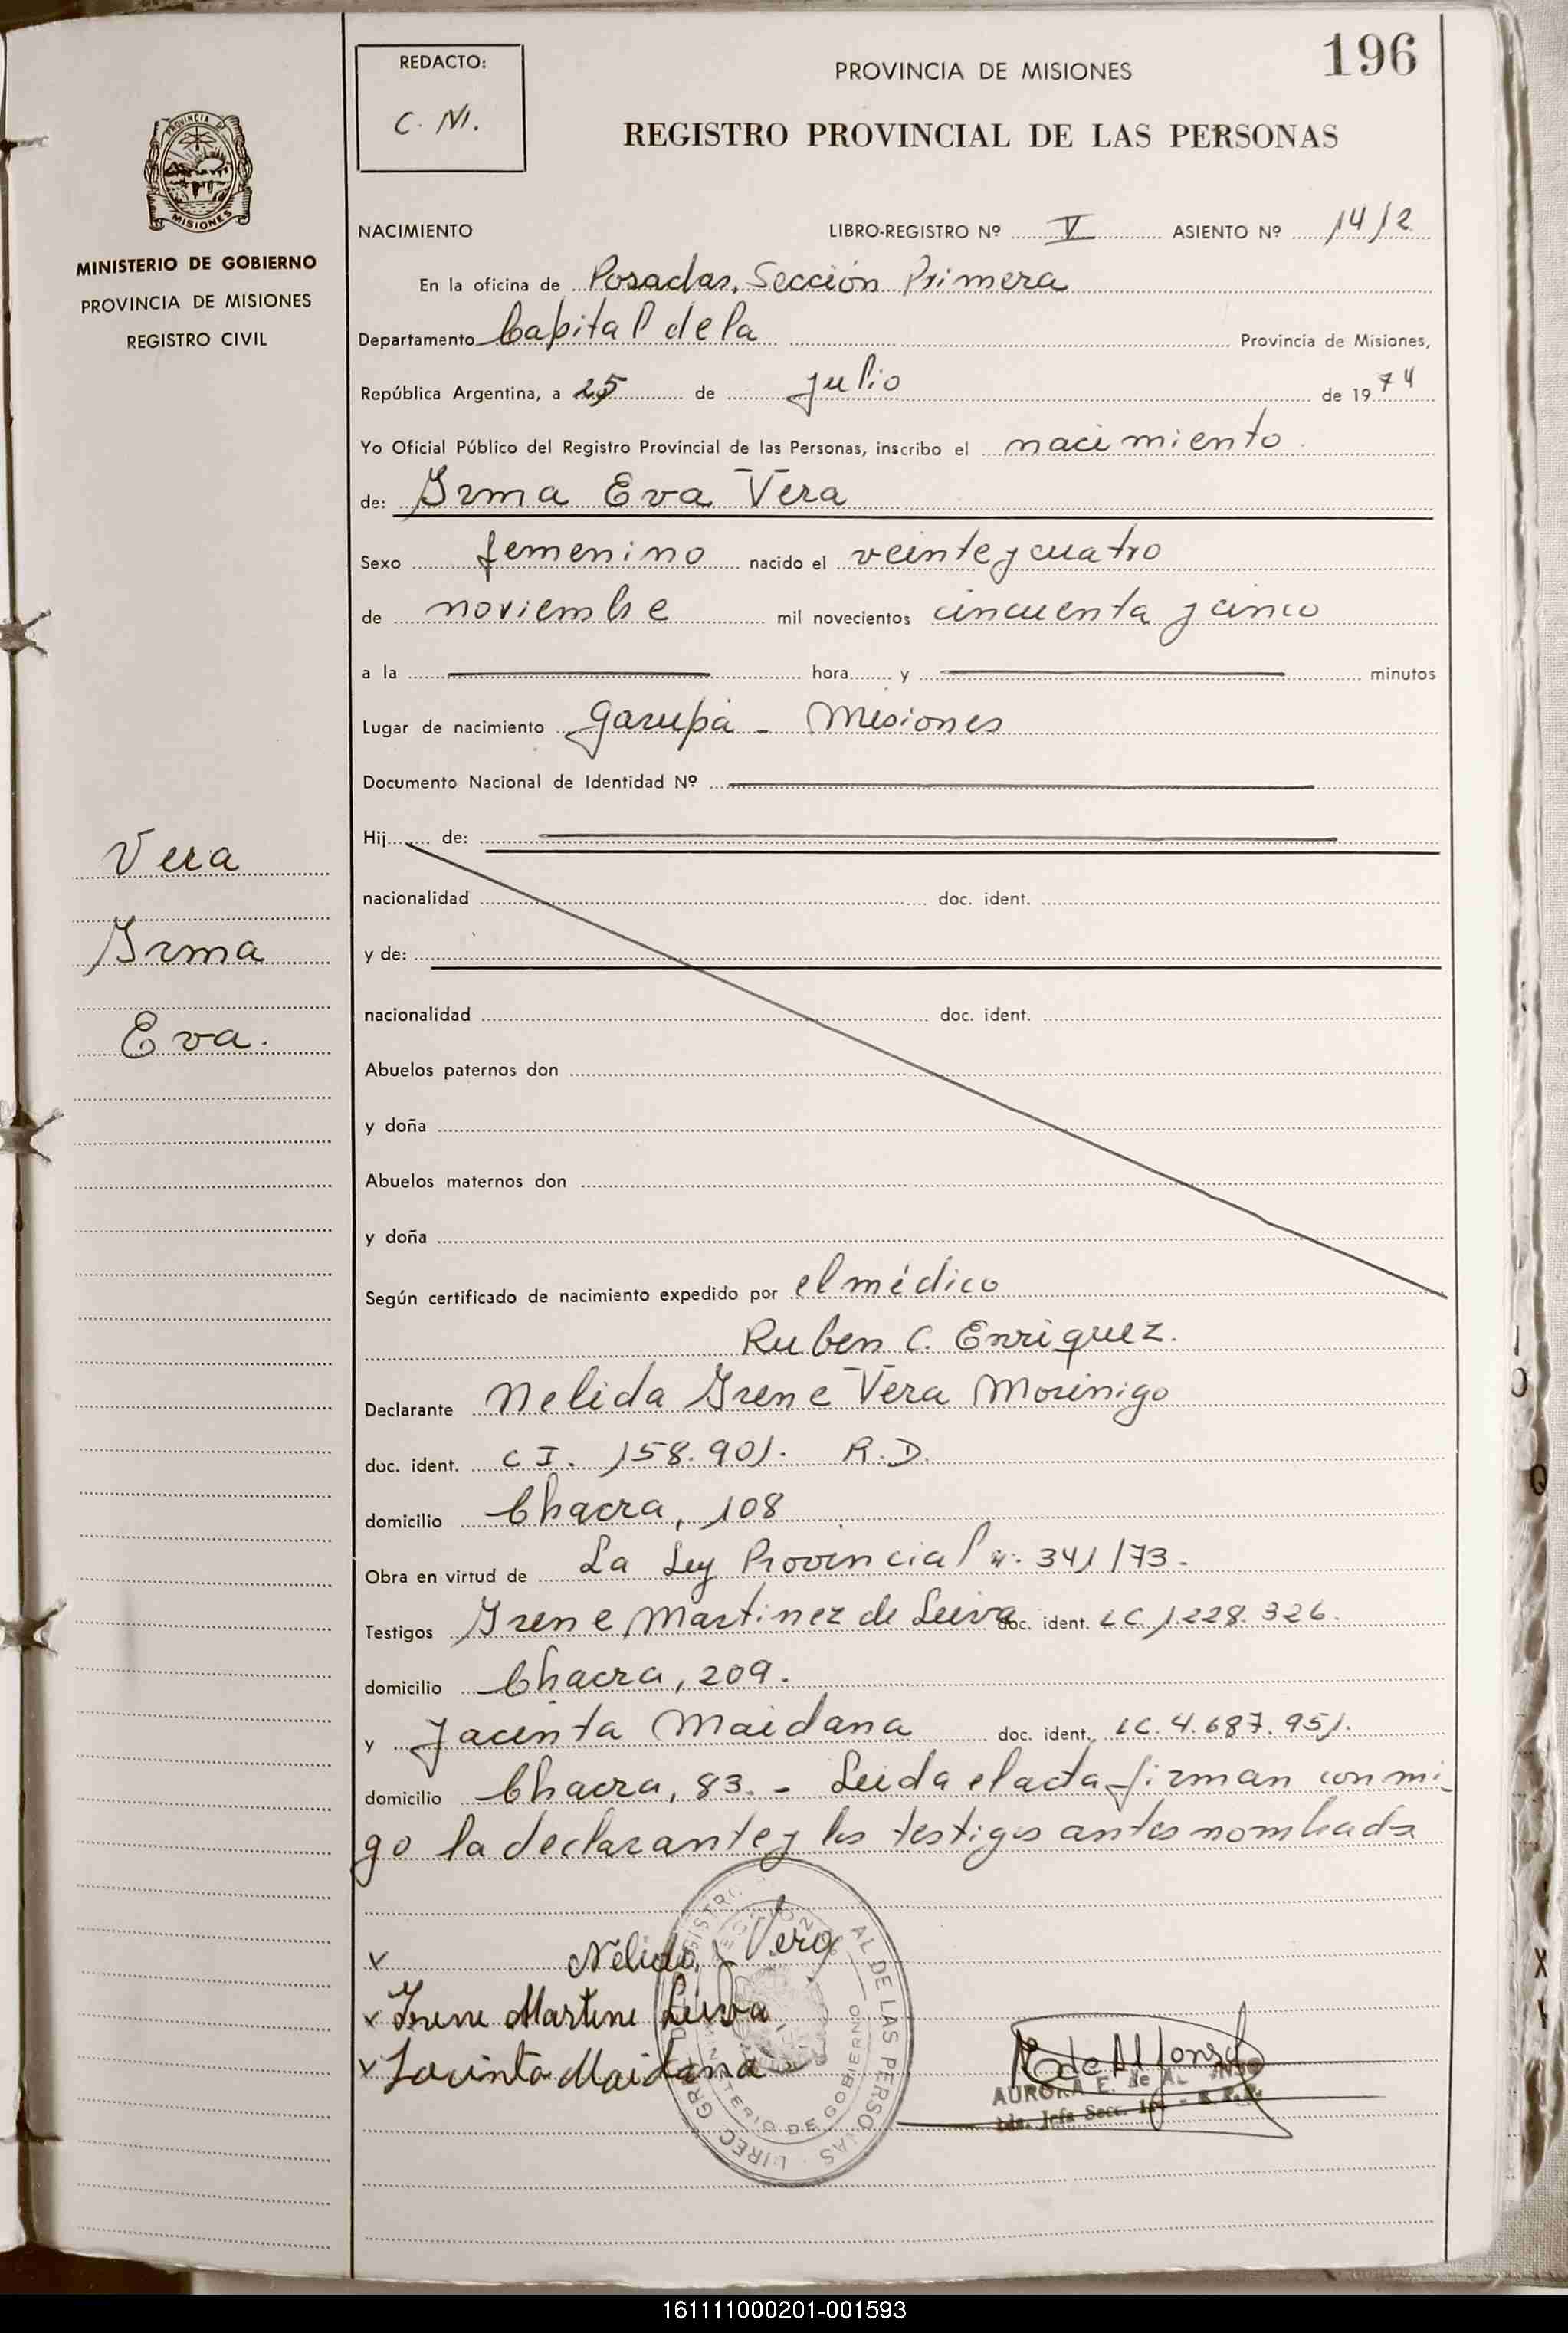 196
REDACTO:
C. M.
PROVINCIA DE MISIONES
REGISTRO PROVINCIAL DE LAS PERSONAS
PROVINCIA DE
MISIONES
MINISTERIO DE GOBIERNO
PROVINCIA DE MISIONES
REGISTRO CIVIL
NACIMIENTO LIBRO-REGISTRO Nº V ASIENTO Nº 1412
En la oficina de Posadas, Sección Primera
Departamento Capital de la Provincia de Misiones,
República Argentina, a 25 de julio de 1974
Yo Oficial Público del Registro Provincial de las Personas, inscribo el nacimiento.
de: Irma Eva Vera
Sexo femenino nacido el veinte y cuatro
de noviembre mil novecientos cincuenta y cinco
a la hora y minutos
Lugar de nacimiento Garupá - Misiones
Documento Nacional de Identidad Nº
Hij de:
Vera
nacionalidad doc. ident.
Irma
y de:
Eva.
nacionalidad doc. ident.
Abuelos paternos don
y doña
Abuelos maternos don
y doña
Según certificado de nacimiento expedido por el médico
Ruben C. Enriquez.
Declarante Nelida Irene Vera Morinigo
doc. ident. C I. 158.901. R.D.
domicilio Chacra, 108
Obra en virtud de La Ley Provincial n: 341/73-
Testigos Irene Martinez de Leiva doc. ident. LC. 1.228.326.
domicilio Chacra, 209.
y Jacinta Maidana doc. ident. LC. 4.687.951.
domicilio Chacra, 83. - Leida el acta firman conmi-
go la declarante y los testigos antes nombrada
x Nelida I Vera
x Irene Martine Leiva
x Jacinta Maidana
AURORA E. de AL
MINISTERIO DE GOBIERNO
AL DE LAS PERSONAS
161111000201-001593